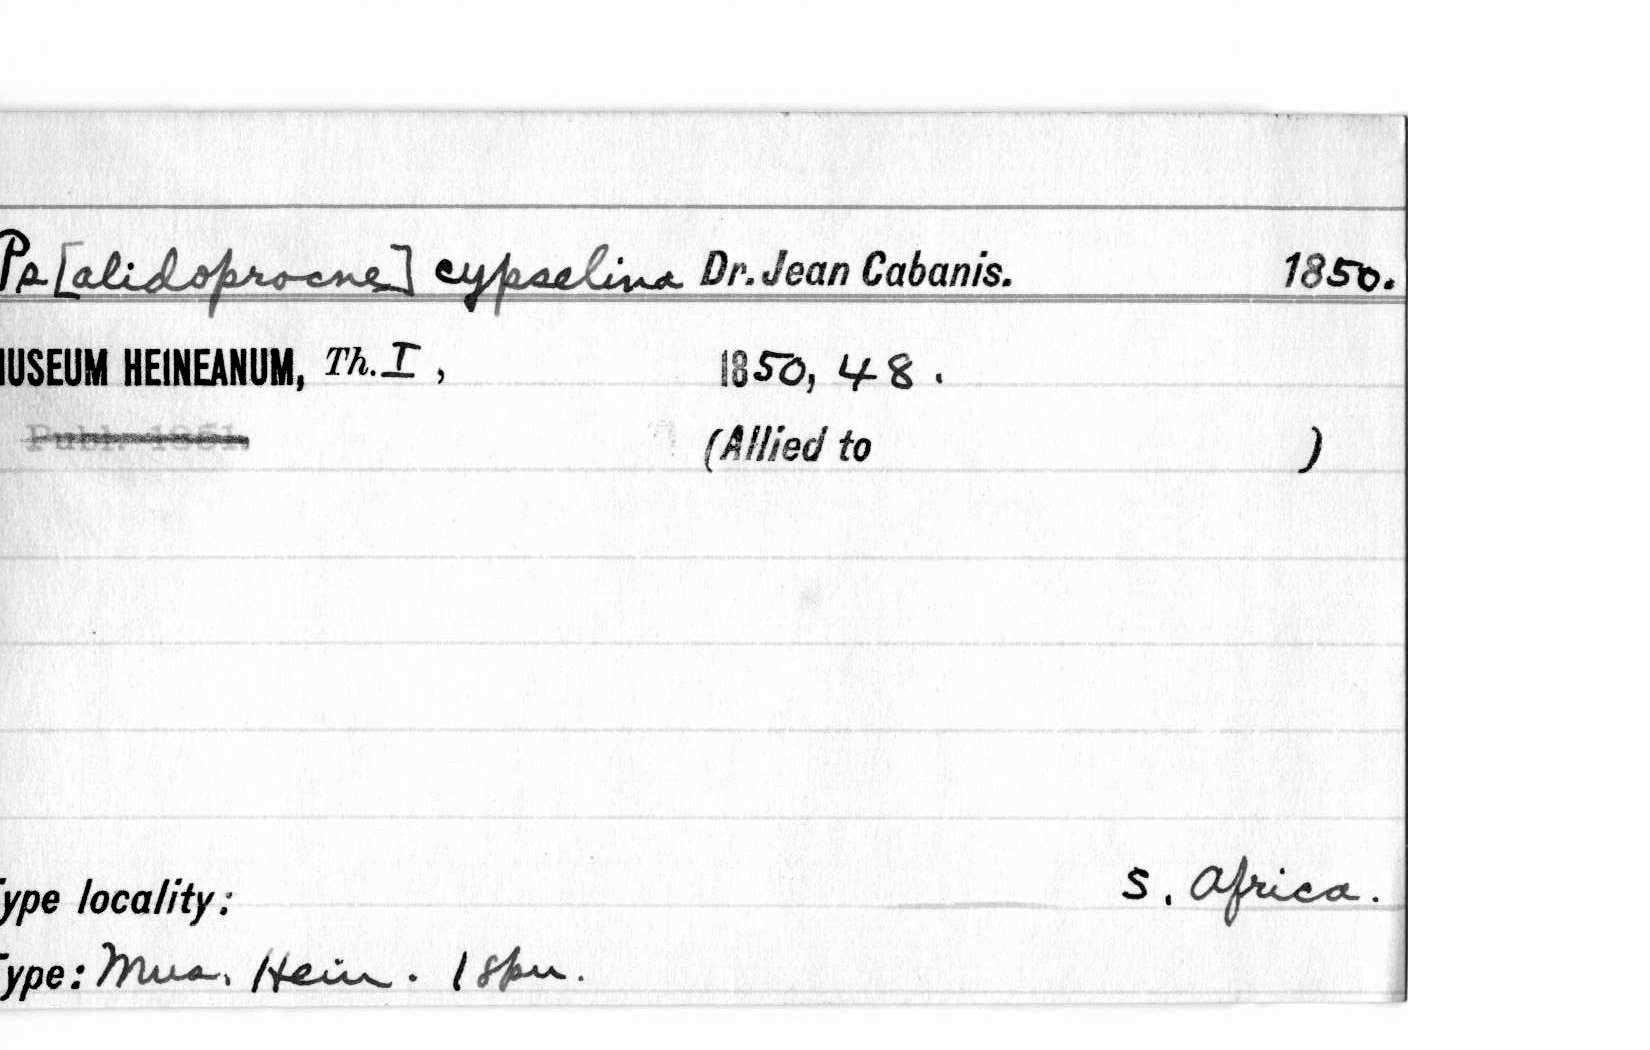 Ps[alidoprocne] cypselina Dr. Jean Cabanis. 1850.
MUSEUM HEINEANUM, Th. I, 1850, 48.
Publ. 1851.
(Allied to )
Type locality: S. Africa.
Type: Mus. Hein. 1 spn.